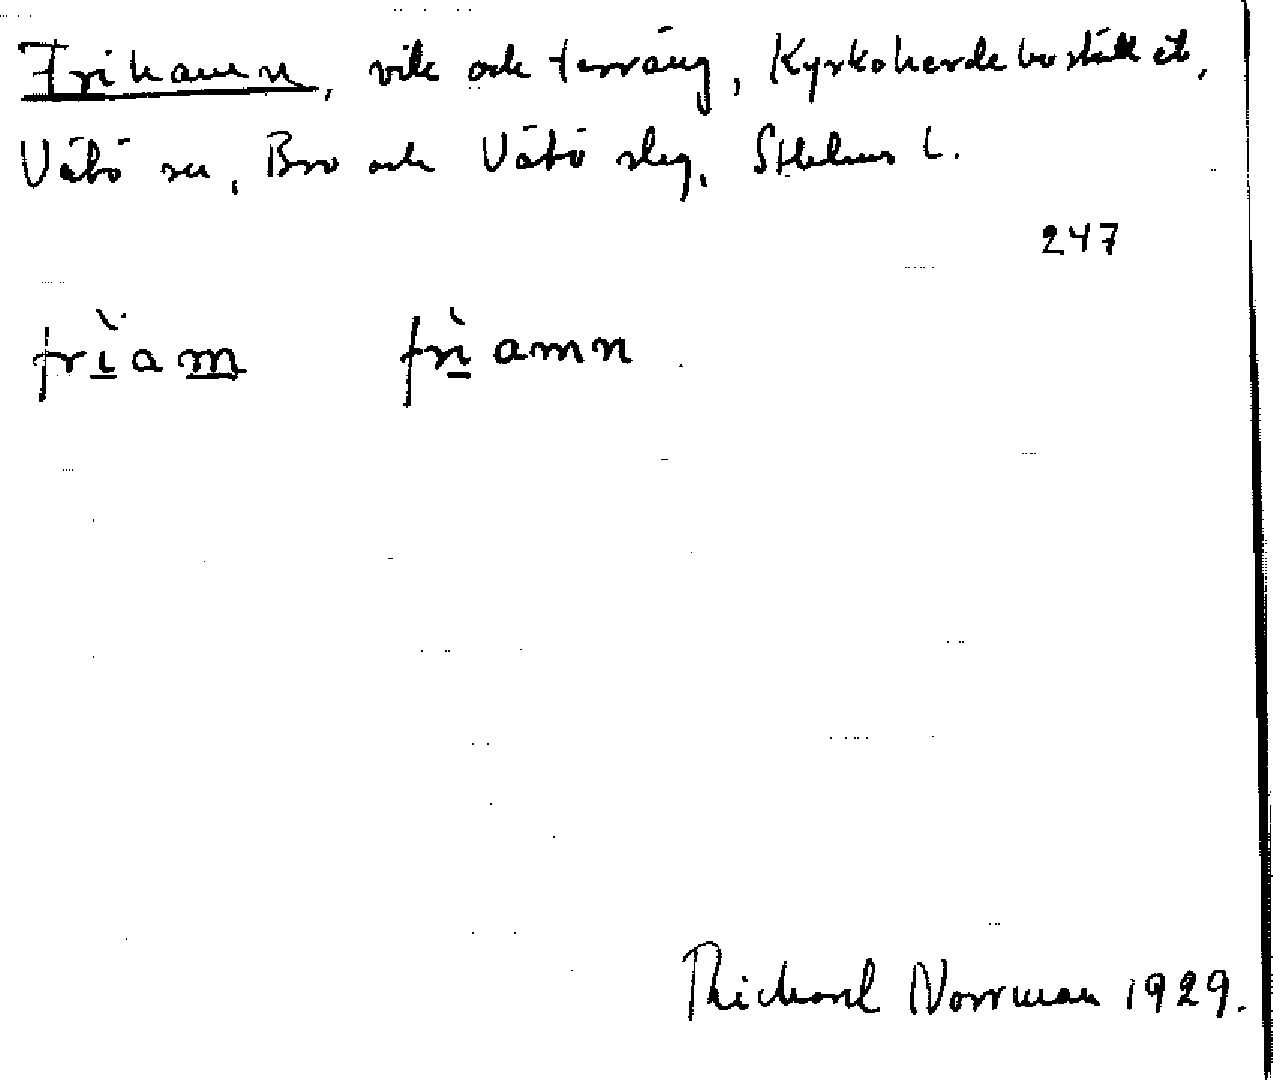 Frihamn, vik och terräng, Kyrkoherdebostället,
Vätö sn, Bro och Vätö slg, Sthlms l.
247
frìam frìamn
Richard Norrman 1929.